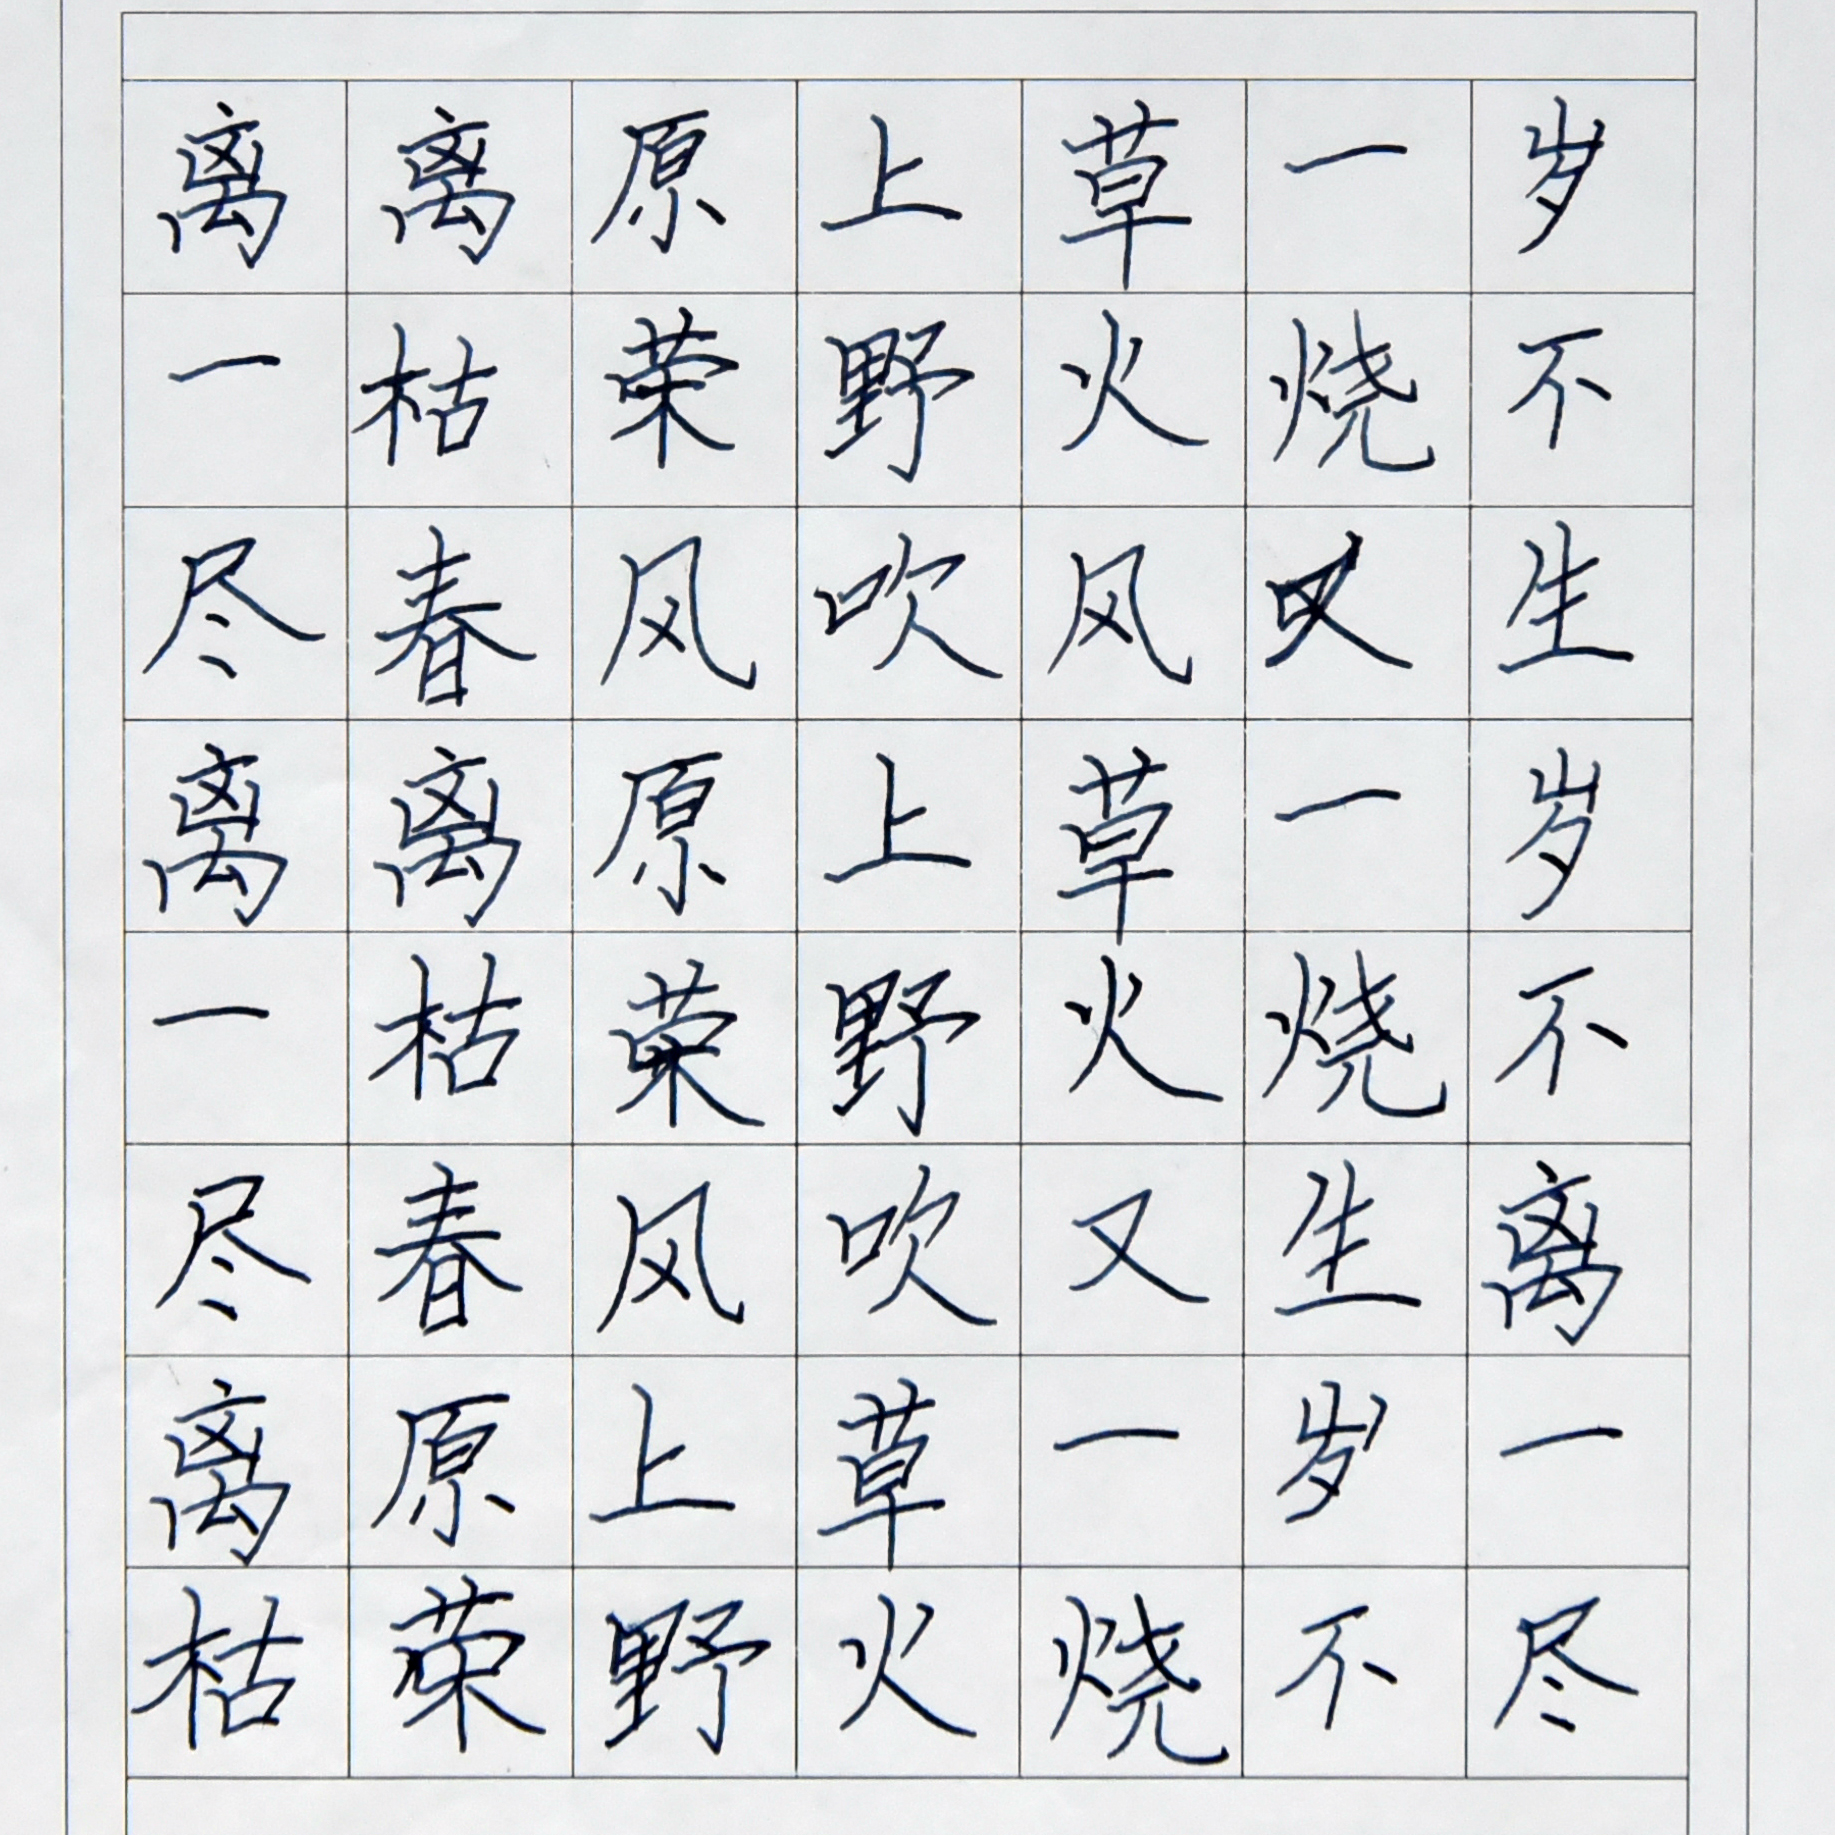 离离原上草一岁
一枯荣野火烧不
尽春风吹风又生
离离原上草一岁
一枯荣野火烧不
尽春风吹又生离
离原上草一岁一
枯荣野火烧不尽